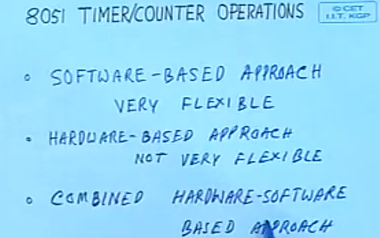 8051 TIMER/COUNTER OPERATIONS
© CET
I.I.T. KGP
SOFTWARE-BASED APPROACH
VERY FLEXIBLE
HARDWARE-BASED APPROACH
NOT VERY FLEXIBLE
COMBINED HARDWARE-SOFTWARE
BASED APPROACH